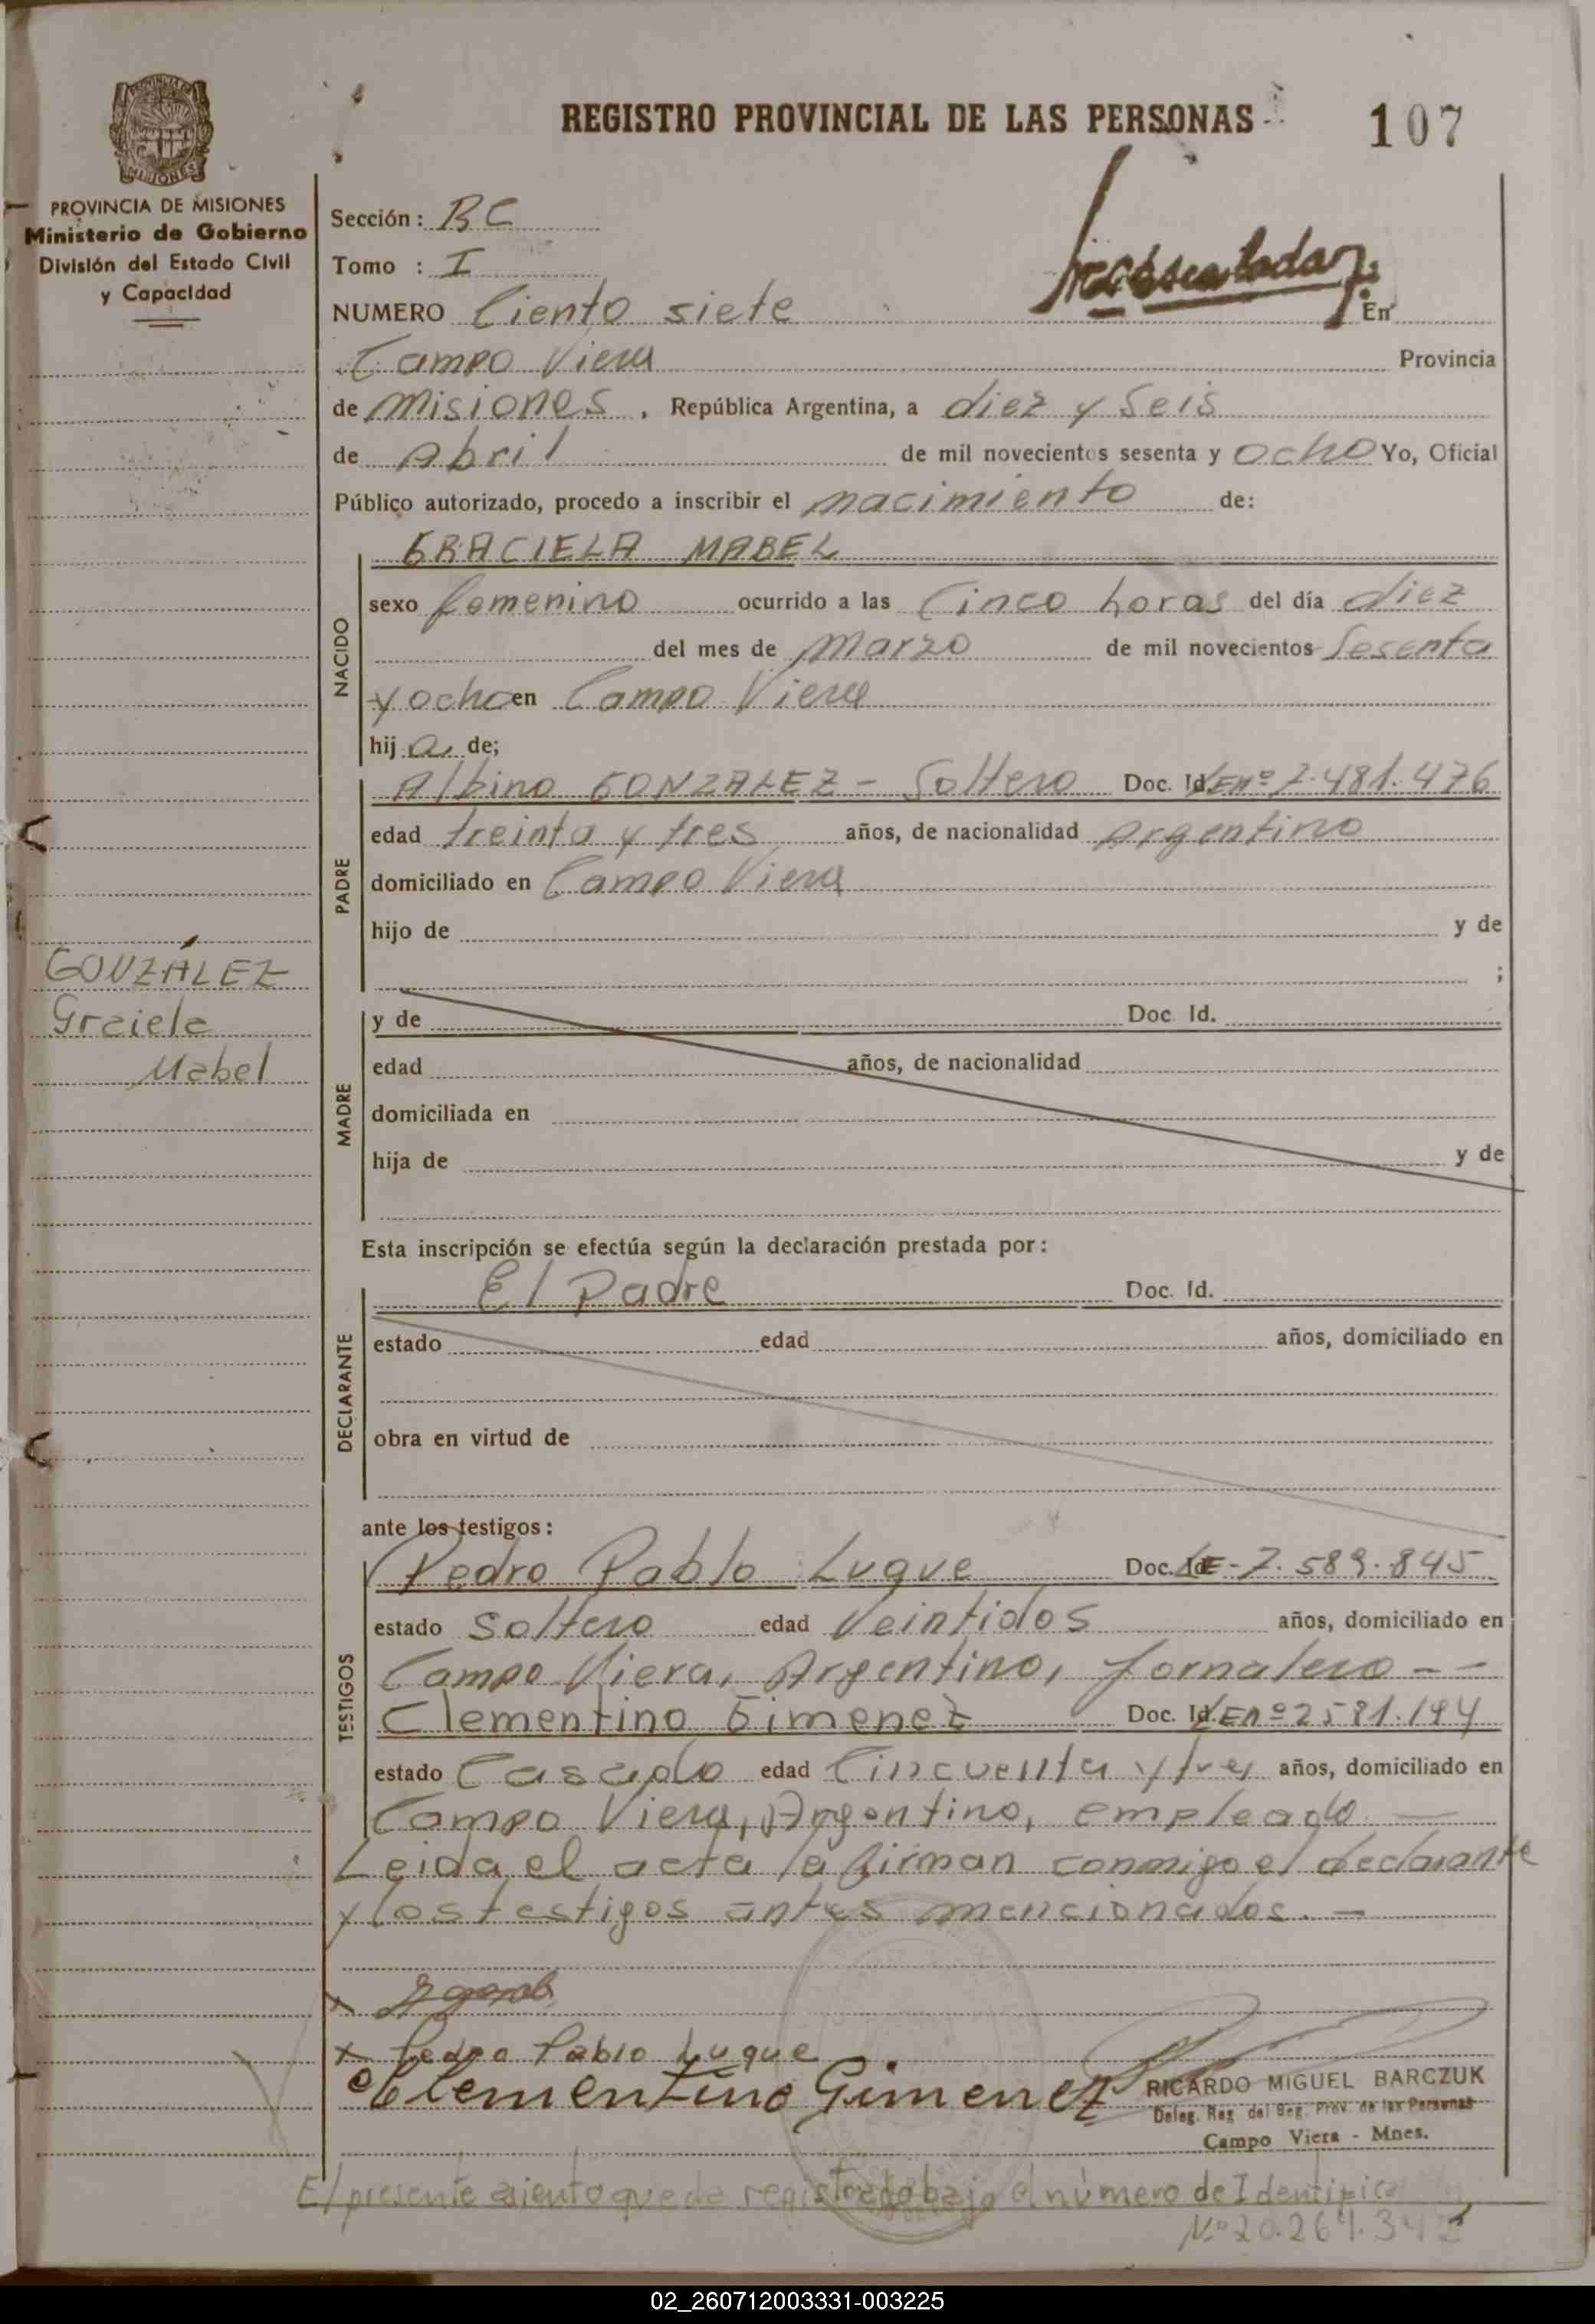 REGISTRO PROVINCIAL DE LAS PERSONAS
107
MISIONES
PROVINCIA DE MISIONES
Ministerio de Gobierno
División del Estado Civil
y Capacidad
Sección: BC
Tomo : I
NUMERO Ciento siete En
Campo Viera Provincia
de Misiones, República Argentina, a diez y Seis
de Abril de mil novecientos sesenta y ocho Yo, Oficial
Público autorizado, procedo a inscribir el nacimiento de:
NACIDO
GRACIELA MABEL
sexo femenino ocurrido a las Cinco horas del día diez
del mes de Marzo de mil novecientos Sesenta
y ocho en Campo Viera
hija de;
PADRE
Albino GONZALEZ - Soltero Doc. Id. LEnº 7.481.476
edad treinta y tres años, de nacionalidad Argentino
domiciliado en Campo Viera
hijo de y de
;
GONZÁLEZ
Graciela
Mabel
MADRE
y de Doc. Id.
edad años, de nacionalidad
domiciliada en
hija de y de
Esta inscripción se efectúa según la declaración prestada por:
DECLARANTE
El Padre Doc. Id.
estado edad años, domiciliado en
obra en virtud de
ante los testigos:
TESTIGOS
Pedro Pablo Luque Doc. Id. LE-7.589.845
estado Soltero edad Veintidos años, domiciliado en
Campo Viera, Argentino, Jornalero - -
Clementino Gimenez Doc. Id. LEnº 2581.194
estado Casado edad Cincuenta y tres años, domiciliado en
Campo Viera, Argentino, empleado —
Leida el acta la firman conmigo el declarante
y los testigos antes mencionados. —
x
x Pedro Pablo Luque
Clementino Gimenez
RICARDO MIGUEL BARCZUK
Deleg. Reg. del Reg. Prov. de las Personas
Campo Viera - Mnes.
El presente asiento queda registrado bajo el número de Identific
Nº 20.264.342
02_260712003331-003225